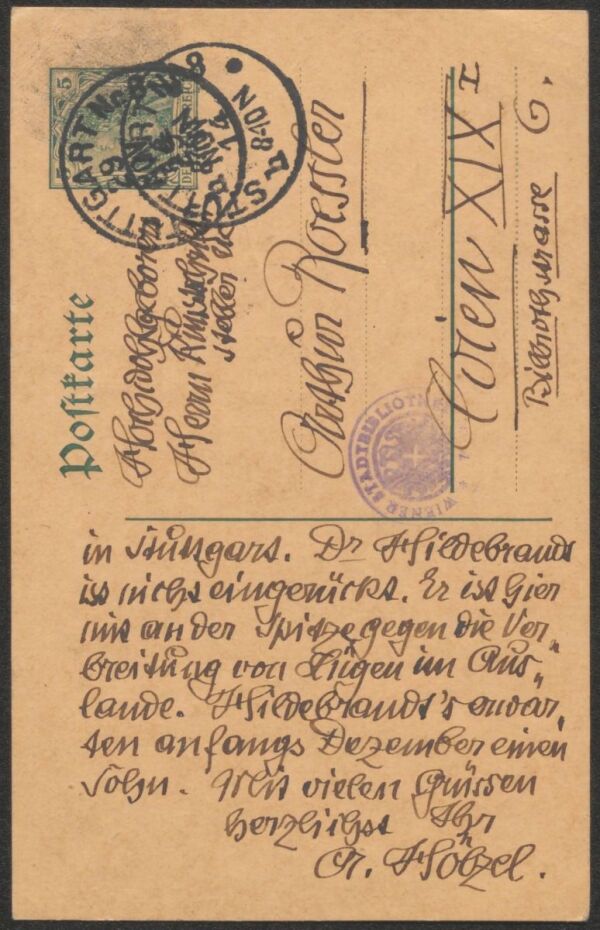 Postkarte
Hochwohlgeboren
Herrn Kunstschrift
steller
Arthur Roessler
Wien XIX I
Billrothstrasse 6.
5
STUTTGART No. 8
8-10 N
WIENER STADTBIBLIOTHEK
in Stuttgart. Dr Hildebrandt
ist nicht eingerückt. Er ist hier
mit an der Spitze gegen die Ver„
breitung von Lügen im Aus„
lande. Hildebrandt's erwar„
ten anfangs Dezember einen
Sohn. Mit vielen Grüssen
herzlichst Ihr
A. Hölzel.